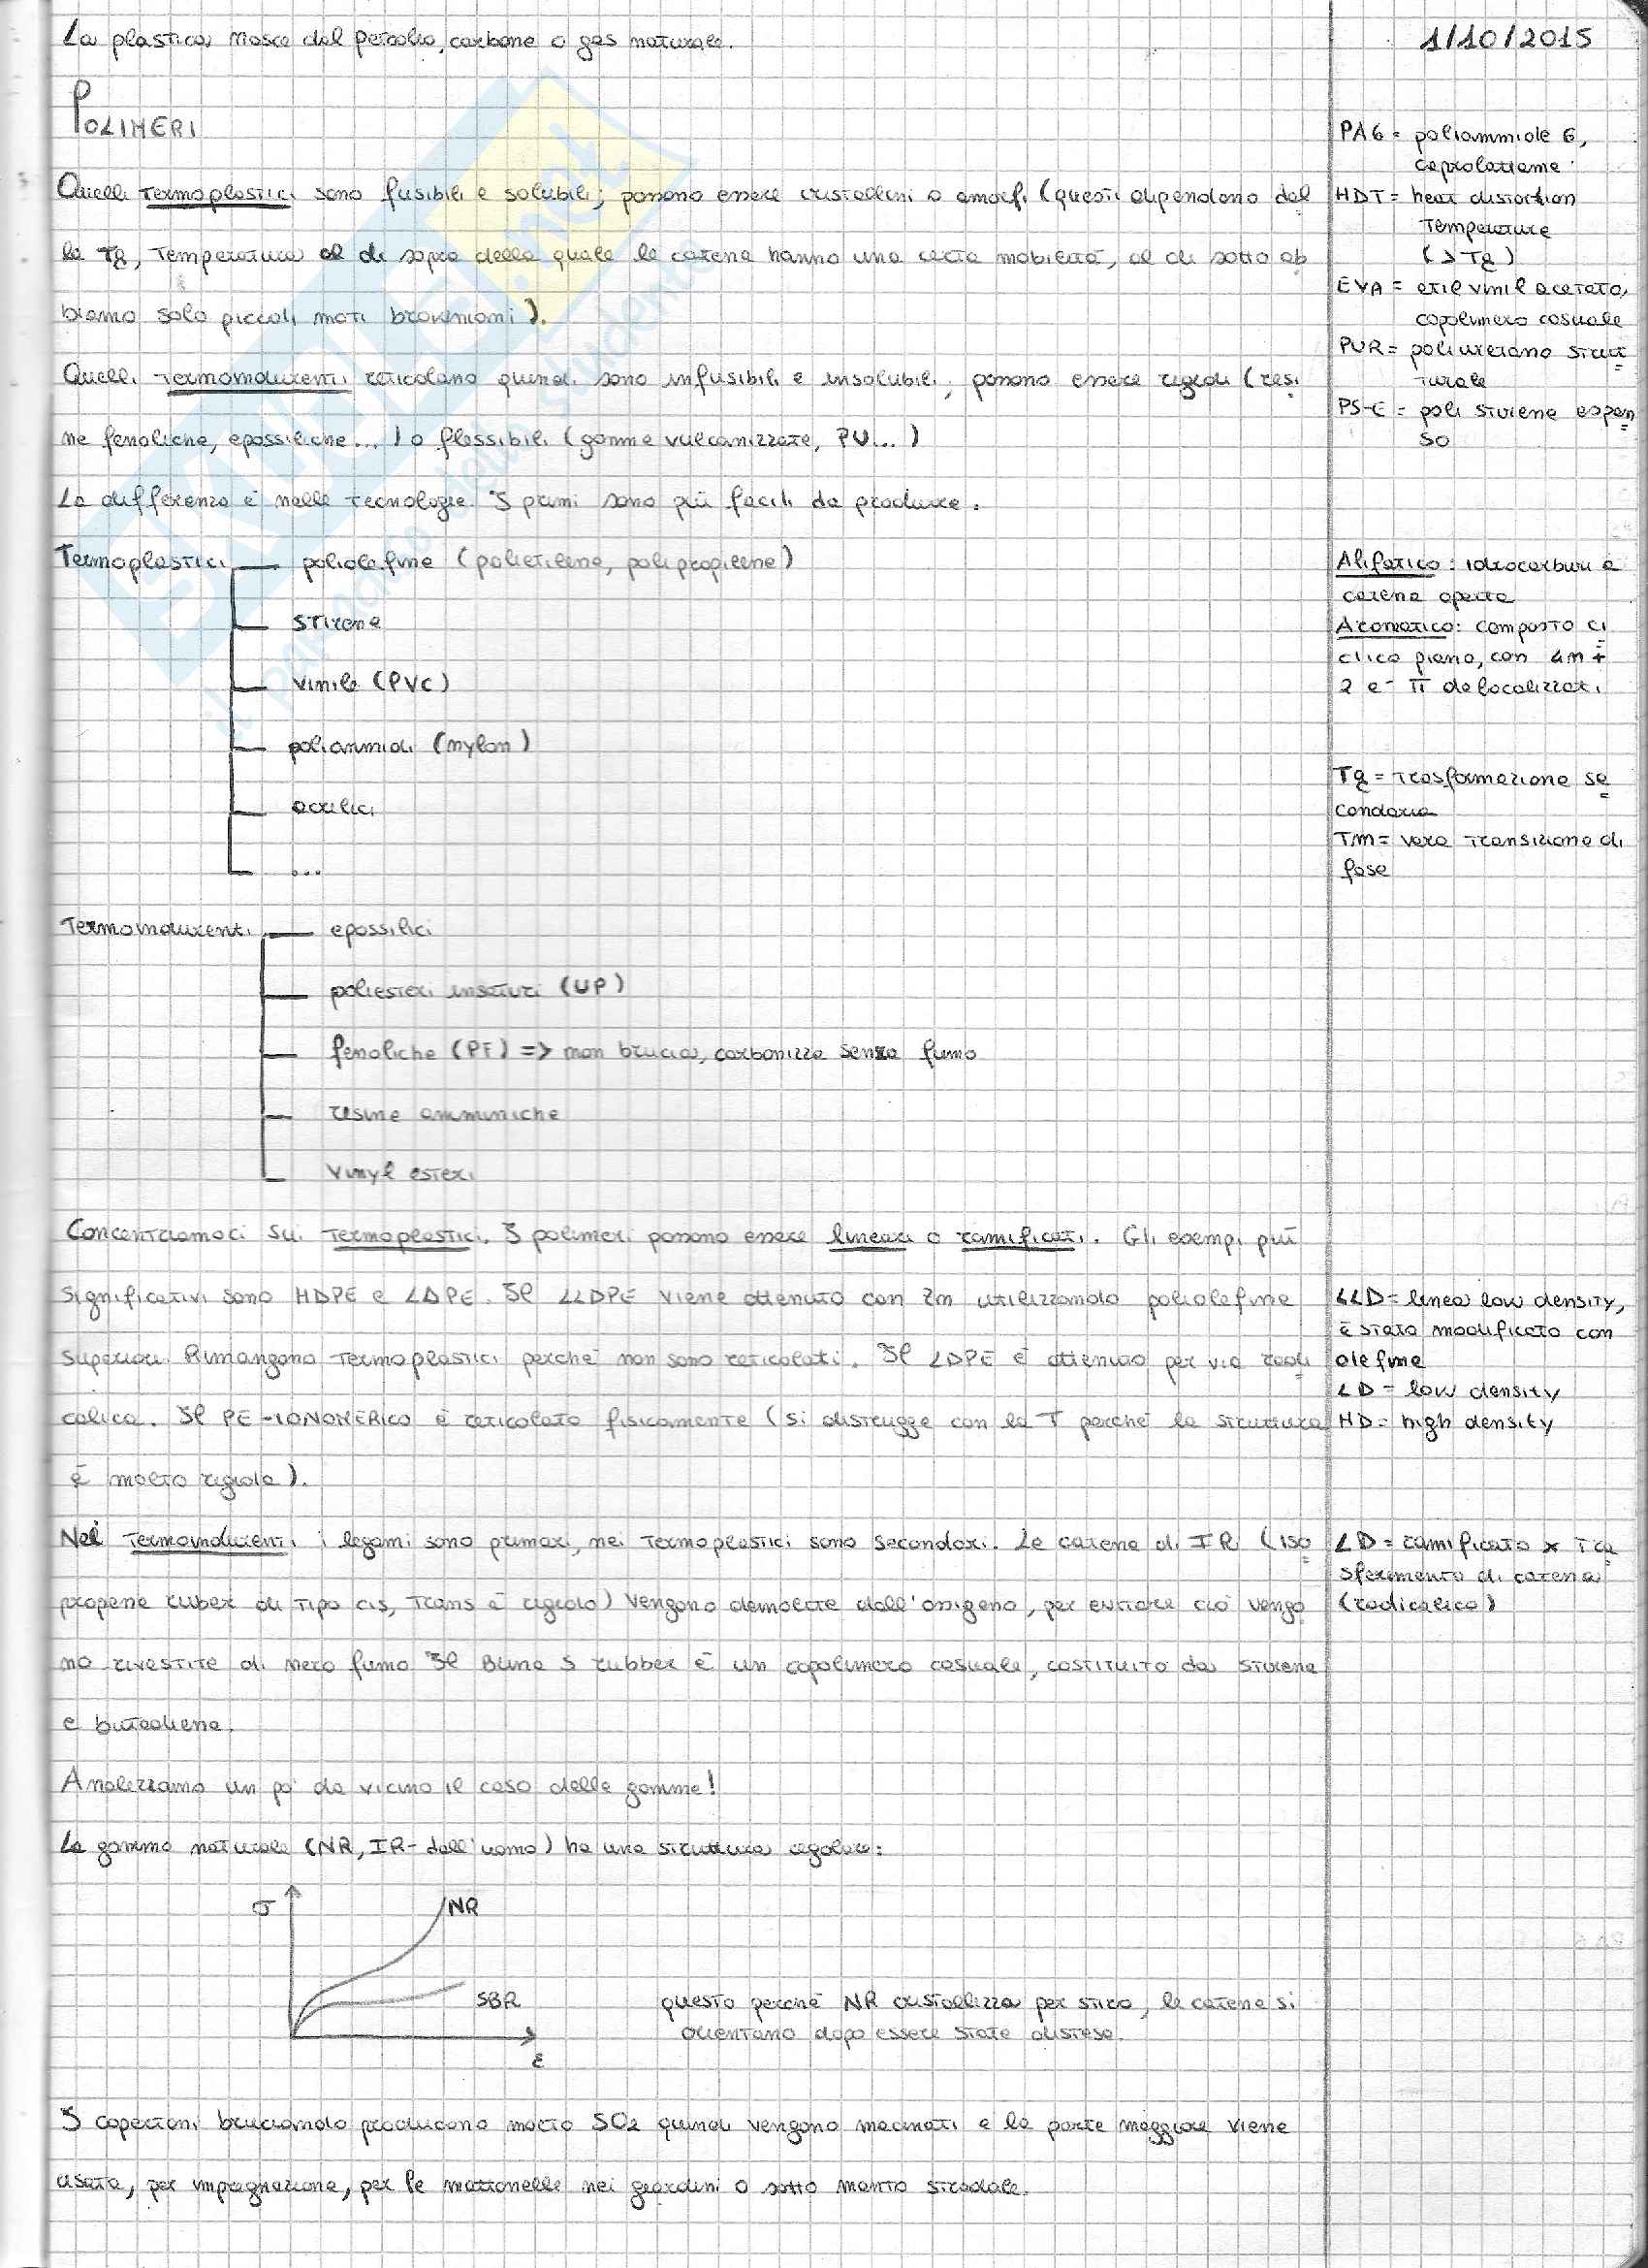 La plastica nasce dal petrolio, carbone o gas naturale.
1/10/2015
POLIMERI
Quelli termoplastici sono fusibili e solubili; possono essere cristallini o amorfi (questi dipendono dal
la Tg, temperatura al di sopra della quale le catene hanno una certa mobilità, al di sotto ab
biamo solo piccoli moti browniani).
Quelli termoindurenti reticolano quindi sono infusibili e insolubili; possono essere rigidi (resi
ne fenoliche, epossiliche...) o flessibili (gomme vulcanizzate, PU...)
La differenza è nelle tecnologie. I primi sono più facili da produrre.
PA6 = poliammide 6,
caprolattame
HDT = heat distortion
temperature
(> Tg)
EVA = etil vinil acetato,
copolimero casuale
PUR = poliuretano strut
turale
PS-E = poli stirene espan
so
Termoplastici
poliolefine (polietilene, polipropilene)
stirene
vinile (PVC)
poliammidi (nylon)
acrilici
...
Alifatico: idrocarburi a
catena aperta
Aromatico: composto ci
clico piano, con 4n+
2 e⁻ π delocalizzati
Tg = trasformazione se
condaria
Tm = vera transizione di
fase
Termoindurenti
epossilici
poliesteri insaturi (UP)
fenoliche (PF) => non brucia, carbonizza senza fumo
resine amminiche
vinyl esteri
Concentriamoci sui termoplastici. I polimeri possono essere lineari o ramificati. Gli esempi più
significativi sono HDPE e LDPE. Il LLDPE viene ottenuto con Zn utilizzando poliolefine
superiori. Rimangono termoplastici perché non sono reticolati. Il LDPE è ottenuto per via radi
calica. Il PE-IONOMERICO è reticolato fisicamente (si distrugge con la T perché la struttura
è molto rigida).
LLD = linear low density,
è stato modificato con
olefine
LD = low density
HD = high density
Nei termoindurenti i legami sono primari, nei termoplastici sono secondari. Le catene di IR (iso
propene rubber di tipo cis, trans è rigido) vengono demolite dall'ossigeno, per evitare ciò vengo
no rivestite di nero fumo. Il Buna S rubber è un copolimero casuale, costituito da stirene
e butadiene.
LD = ramificato x tra
sferimento di catena
(radicalico)
Analizziamo un po' da vicino il caso delle gomme!
La gomma naturale (NR, IR-dall'uomo) ha una struttura regolare:
σ
NR
SBR
ε
questo perché NR cristallizza per stiro, le catene si
orientano dopo essere state distese.
I copertoni bruciando producono molto SO2 quindi vengono macinati e la parte maggiore viene
usata, per impagnazione, per le mattonelle nei giardini o sotto manto stradale.